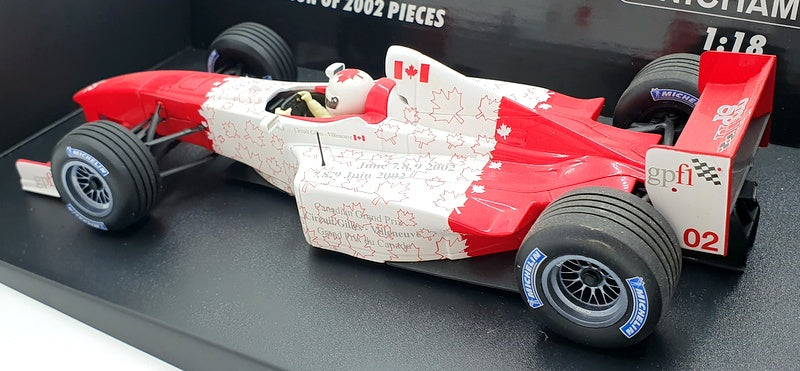 N OF 2002 PIECES
NICHAM
1:18
Circuit Gilles - Villeneuve
June 7,8,9 2002
7,8,9 Juin 2002
Canadian Grand Prix
Circuit Gilles - Villeneuve
Grand Prix du Canada
gpf1
gpf1
02
MICHELIN
MICHELIN
MICHELIN
MICHELIN
MICHELIN